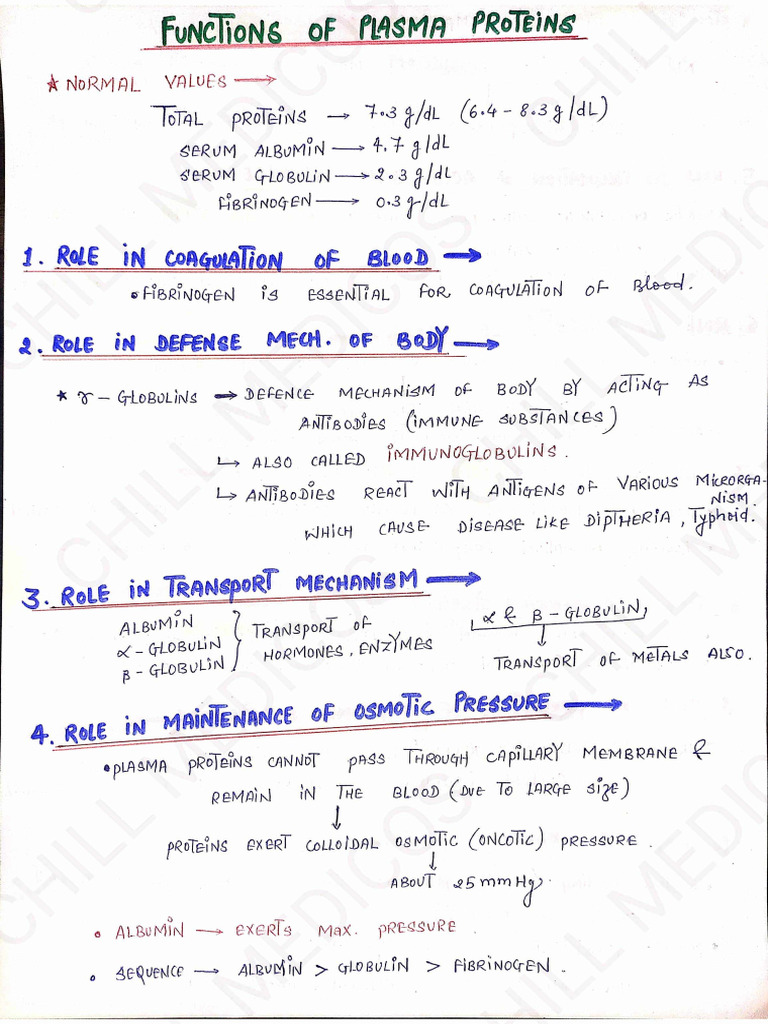 FUNCTIONS OF PLASMA PROTEINS
★ NORMAL VALUES →
TOTAL PROTEINS → 7.3 g/dL (6.4 - 8.3 g/dL)
SERUM ALBUMIN → 4.7 g/dL
SERUM GLOBULIN → 2.3 g/dL
FIBRINOGEN → 0.3 g/dL
1. ROLE IN COAGULATION OF BLOOD →
• FIBRINOGEN IS ESSENTIAL FOR COAGULATION OF Blood.
2. ROLE IN DEFENSE MECH. OF BODY →
★ γ - GLOBULINS → DEFENCE MECHANISM OF BODY BY ACTING AS
ANTIBODIES (IMMUNE SUBSTANCES)
↳ ALSO CALLED IMMUNOGLOBULINS.
↳ ANTIBODIES REACT WITH ANTIGENS OF VARIOUS MICRORGA-
NISM.
WHICH CAUSE DISEASE LIKE DIPTHERIA, Typhoid.
3. ROLE IN TRANSPORT MECHANISM →
ALBUMIN
α - GLOBULIN
β - GLOBULIN
} TRANSPORT OF
HORMONES, ENZYMES
α & β - GLOBULIN,
↓
TRANSPORT OF METALS ALSO.
4. ROLE IN MAINTENANCE OF OSMOTIC PRESSURE →
• PLASMA PROTEINS CANNOT PASS THROUGH CAPILLARY MEMBRANE &
REMAIN IN THE BLOOD (DUE TO LARGE SIZE)
↓
PROTEINS EXERT COLLOIDAL OSMOTIC (ONCOTIC) PRESSURE.
↓
ABOUT 25 mm Hg.
• ALBUMIN → EXERTS MAX. PRESSURE.
• SEQUENCE → ALBUMIN > GLOBULIN > FIBRINOGEN.
CHILL MEDICOS